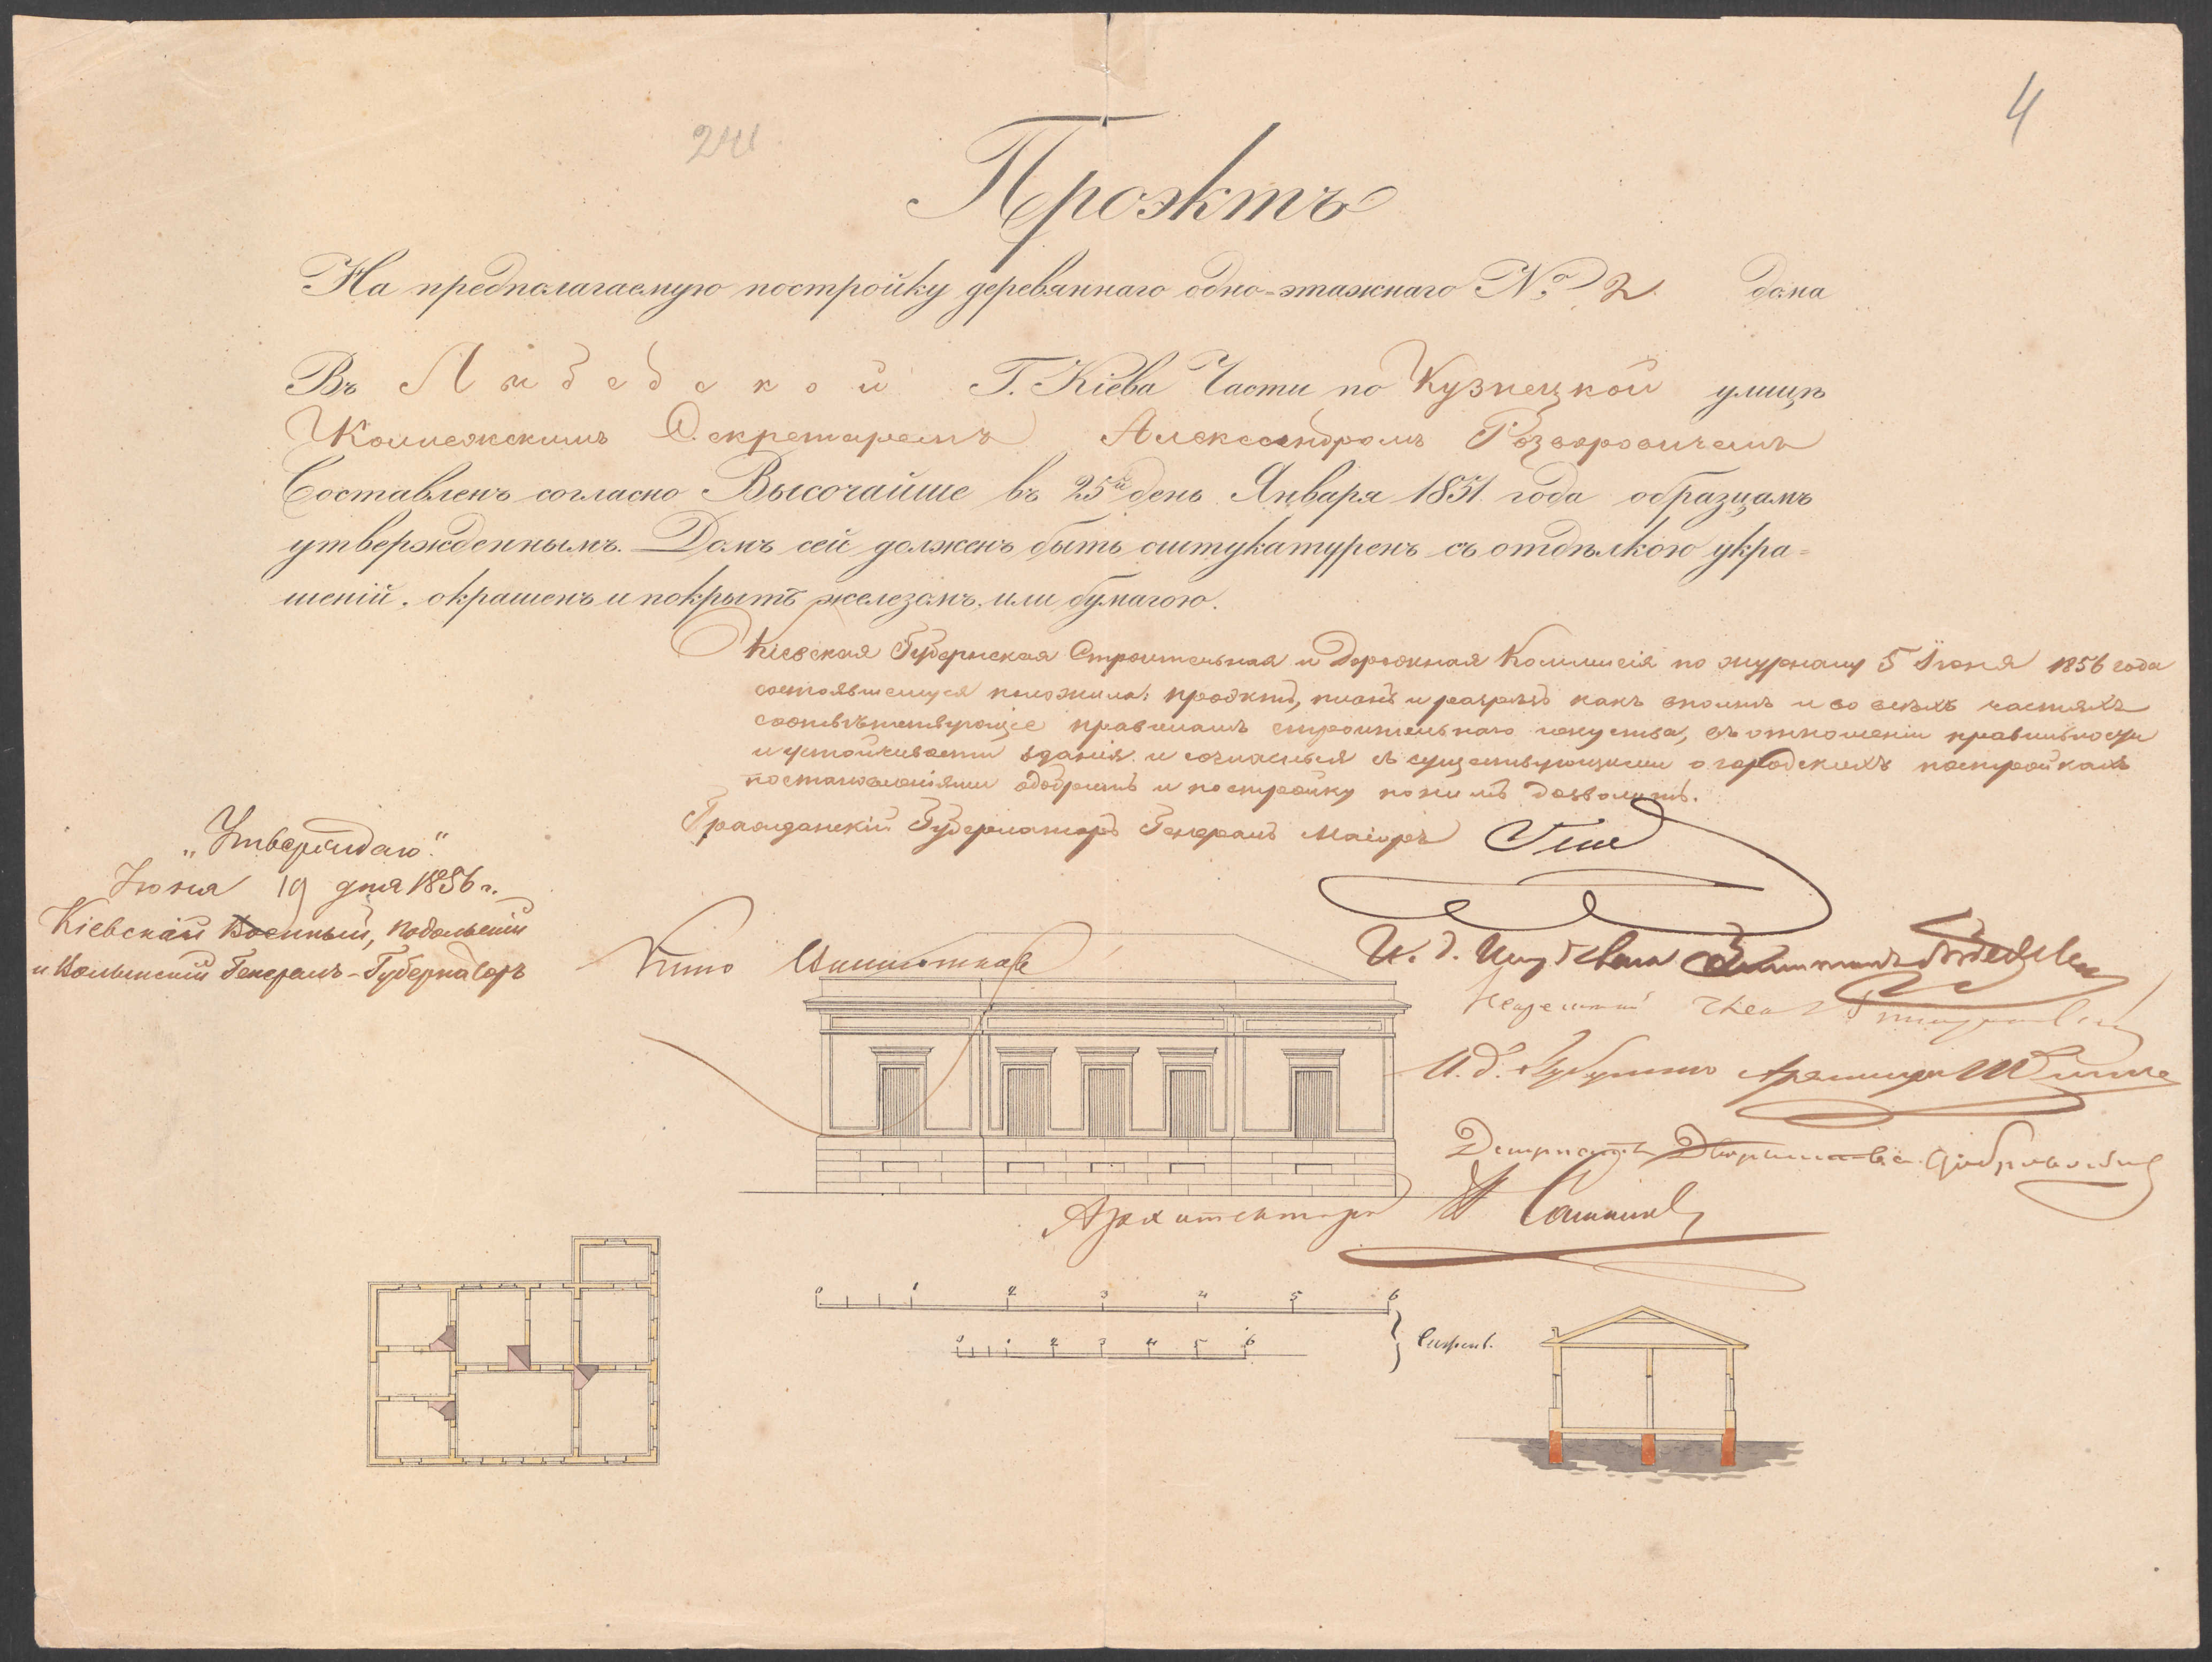 4
Проэктъ
На предполагаемую постройку деревяннаго одно-этажнаго № 2. дома
Въ Лыбедской Г. Кіева Части по Кузнецкой улицѣ
Коллежскимъ Секретаремъ Александромъ
Составленъ согласно Высочайше въ 25й день Января 1851 года образцамъ
утвержденнымъ. Домъ сей долженъ быть оштукатуренъ съ отдѣлкою укра=
шеній, окрашенъ и покрытъ железомъ, или бумагою.
Кіевская Губернская Строительная и Дорожная Коммисія по журналу 5 Іюня 1856 года
состоявшемуся положила: проэктъ, планъ и разрѣзъ какъ вполнѣ и во всѣхъ частяхъ
соотвѣтствующіе правиламъ строительнаго искуства, въ отношеніи правильности
и устойчивости зданія и согласныя съ существующими о городскихъ постройкахъ
постановленіями одобрить и постройку по нимъ дозволить.
Гражданскій Губернаторъ Генералъ Маіоръ
„Утверждаю“.
Іюня 19 дня 1856 г.
Кіевскій Военный, Подольскій
и Волынскій Генералъ-Губернаторъ
И. д.
И. д. Архитектора
Депутатъ Дворянства
Архитекторъ
0 1 2 3 4 5 6
0 1 2 3 4 5 6
Сажень.